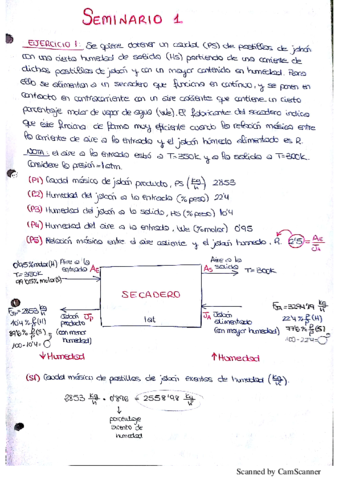 SEMINARIO 1
EJERCICIO 1: Se quiere obtener un caudal (PS) de pastillas de jabón
con una cierta humedad de salida (HS) partiendo de una corriente de
dichas pastillas de jabón y con un mayor contenido en humedad. Para
ello se alimentan a un secadero que funciona en continuo, y se ponen en
contacto en contracorriente con un aire caliente que contiene un cierto
porcentaje molar de vapor de agua (We). El fabricante del secadero indica
que éste funciona de forma muy eficiente cuando la relación másica entre
la corriente de aire a la entrada y el jabón húmedo alimentado es R.
NOTA: el aire a la entrada está a T=350K, y a la salida a T=300K.
Considere la presión=1atm.
(P1) Caudal másico de jabón producto, PS (Kg/h) 2853
(P2) Humedad del jabón a la entrada (% peso) 22'4
(P3) Humedad del jabón a la salida, HS (% peso) 10'4
(P4) Humedad del aire a la entrada, We (%molar) 0'95
(P5) Relación másica entre el aire caliente y el jabón húmedo, R. 2'5 =
Aire a la entrada Ae
Aire a la salida
T=300K
SECADERO
1at
Jabón producto
(con menor humedad)
Jabón alimentado
(con mayor humedad)
22'4 % (H)
77'6 % (S)
10'4 % (H)
89'6 % (S)
100-10'4=
100-22'4=
↓Humedad
↑Humedad
(S1) Caudal másico de pastillas de jabón exentas de humedad (Kg/h).
2853 Kg/h · 0'896 = 2556'98 Kg/h
↓
porcentaje
exento de
humedad
Scanned by CamScanner